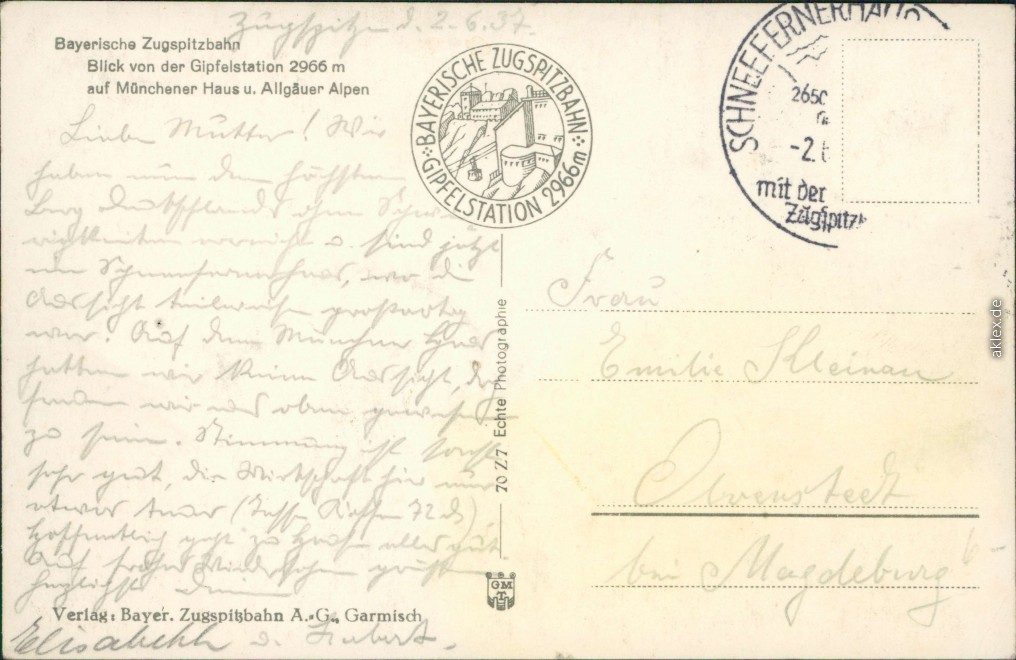 Zugspitze d. 2.6.37.
Bayerische Zugspitzbahn
Blick von der Gipfelstation 2966 m
auf Münchener Haus u. Allgäuer Alpen
Liebe Mutter! Wir
haben nun den höchsten
Berg Deutschlands ohne Schwie
rigkeiten erreicht u. sind jetzt
im Schneefernerhaus, wo die
Aussicht teilweise großartig
war. Auf dem Münchner Haus
hatten wir keine Aussicht, da
wir oben gewesen
zu sein. Stimmung ist sonst
sehr gut, die Wirtschaft hier nur
etwas teuer (Tasse Kaffee 72 d)
Hoffentlich geht zu Hause alles gut
Auf frohes Wiedersehen grüßen
herzlichst Deine
Verlag: Bayer. Zugspitzbahn A.-G., Garmisch
Elisabeth u. Hubert.
BAYERISCHE ZUGSPITZBAHN
GIPFELSTATION 2966 m
70 Z 7 Echte Photographie
GMT
SCHNEEFERNERHAUS
2650
-2.
mit der
Zugspitz
Frau
Emilie Kleinau
Olvenstedt
bei Magdeburg
aklex.de